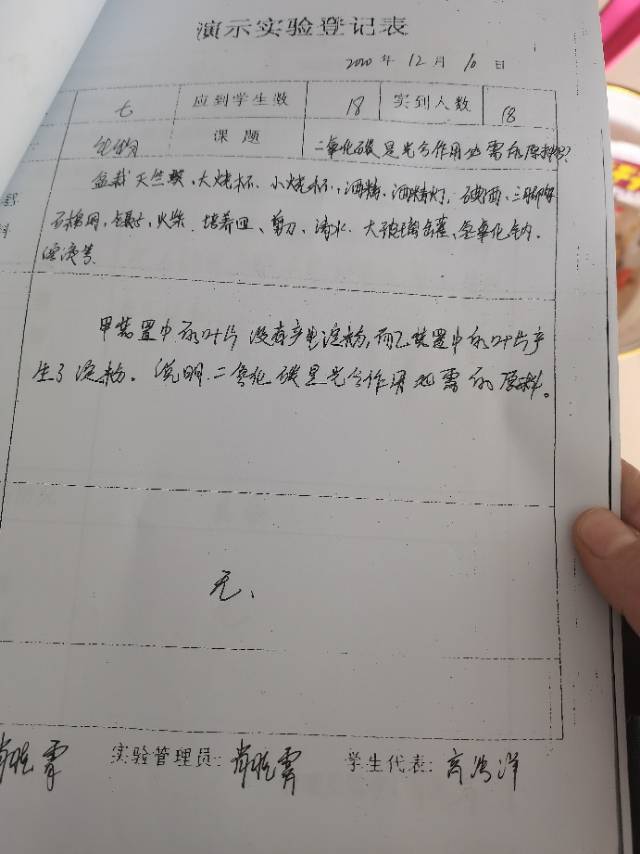 演示实验登记表
2020 年 12 月 10 日
七 应到学生数 18 实到人数 18
生物 课 题 二氧化碳是光合作用必需的原料吗?
盆栽天竺葵、大烧杯、小烧杯、酒精、酒精灯、碘酒、三脚架
石棉网、镊子、火柴、培养皿、剪刀、清水、大玻璃钟罩、氢氧化钠
料
溶液等
甲装置中的叶片没有产生淀粉,而乙装置中的叶片产
生了淀粉。说明二氧化碳是光合作用必需的原料。
无、
实验管理员: 学生代表: